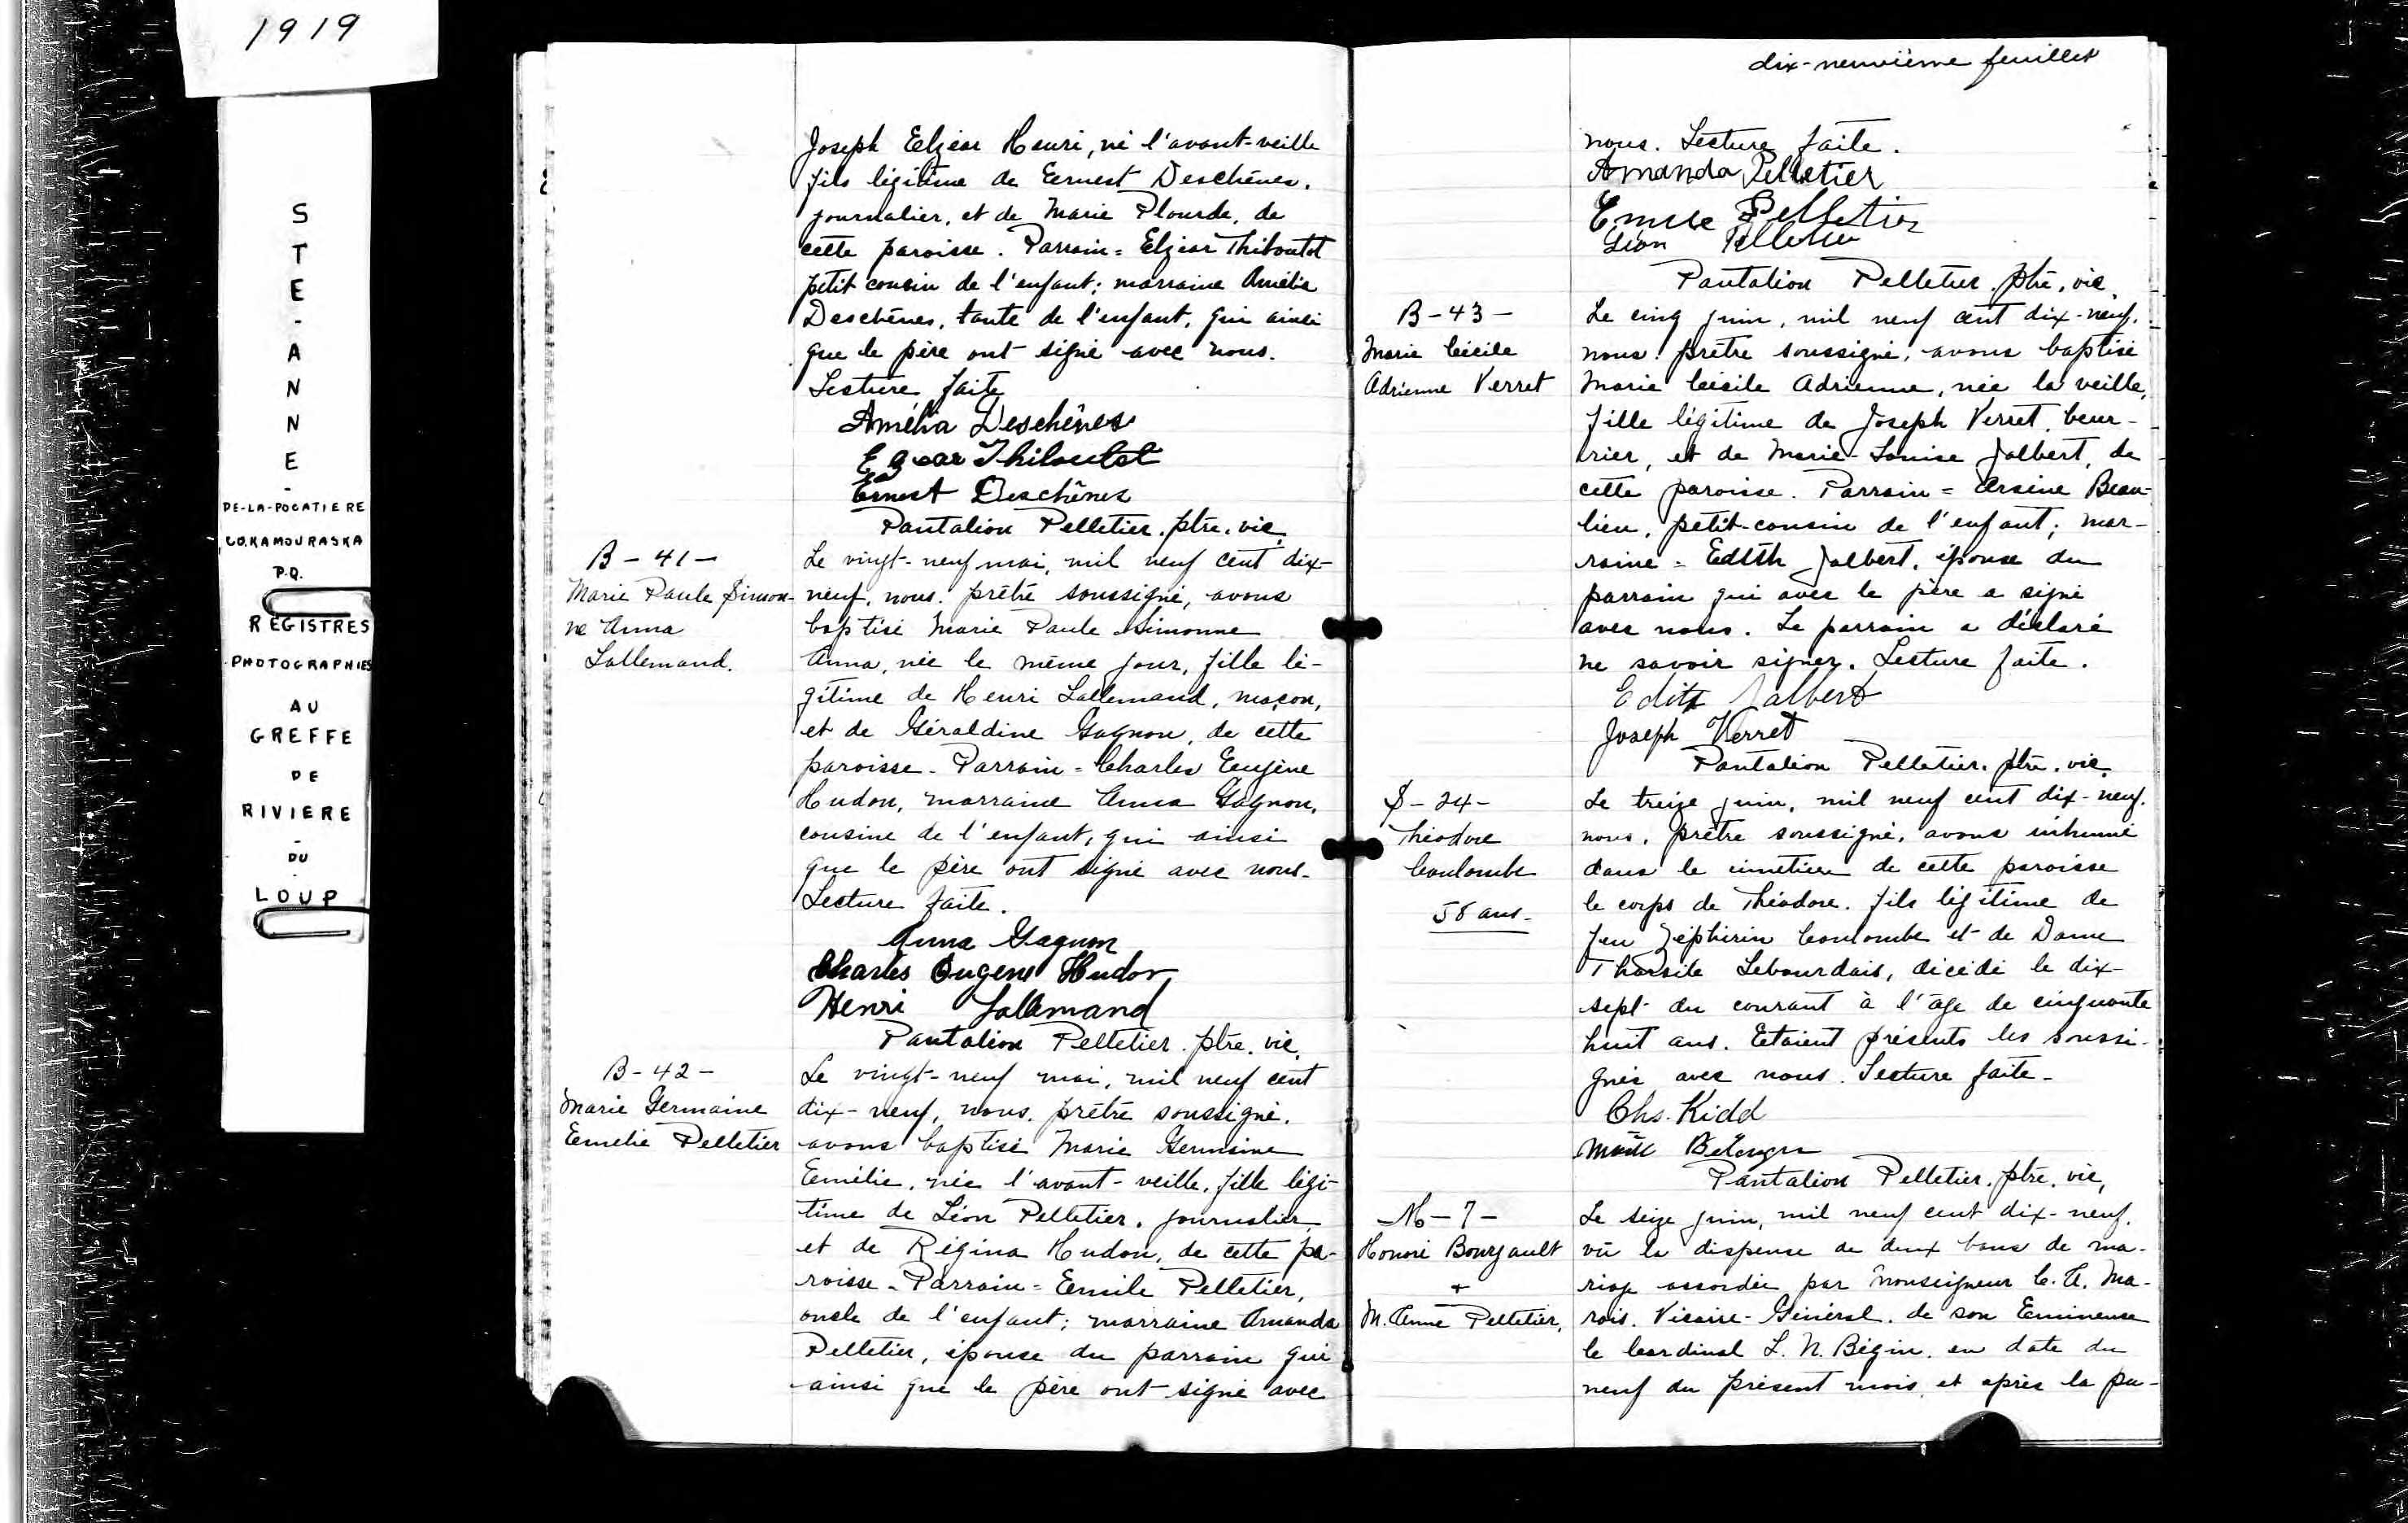 1919
STE-ANNE-
DE-LA-POCATIERE
CO. KAMOURASKA
P.Q.
REGISTRES
PHOTOGRAPHIES
AU
GREFFE
DE
RIVIERE
-
DU
-
LOUP
Joseph Elzéar Henri, né l'avant-veille
fils légitime de Ernest Deschênes,
journalier, et de Marie Plourde, de
cette paroisse. Parrain = Elzéar Thiboutot
petit cousin de l'enfant; marraine Amélia
Deschênes, tante de l'enfant, qui ainsi
que le père ont signé avec nous.
Lecture faite
Amélia Deschênes
Thiboutot
Ernest Deschênes
Pantaléon Pelletier, ptre, vic.
B-41-
Marie Paule Simon-
ne Anna
Lallemand.
Le vingt-neuf mai, mil neuf cent dix-
neuf, nous, prêtre soussigné, avons
baptisé Marie Paule Simonne
Anna, née le même jour, fille lé-
gitime de Henri Lallemand, maçon,
et de Géraldine Gagnon, de cette
paroisse - Parrain = Charles Eugène
Hudon, marraine Anna Gagnon,
cousine de l'enfant, qui ainsi
que le père ont signé avec nous.
Lecture faite.
Anna Gagnon
Charles Eugene Hudon
Henri Lallemand
Pantaléon Pelletier, ptre, vic.
B-42-
Marie Germaine
Emélie Pelletier
Le vingt-neuf mai, mil neuf cent
dix-neuf, nous, prêtre soussigné,
avons baptisé Marie Germaine
Emélie, née l'avant-veille, fille légi-
time de Léon Pelletier, journalier
et de Régina Hudon, de cette pa-
roisse - Parrain = Emile Pelletier,
oncle de l'enfant; marraine Amanda
Pelletier, épouse du parrain qui
ainsi que le père ont signé avec
dix-neuvième feuillet
nous. Lecture faite.
Amanda Pelletier
Emile Pelletier
Léon Pelletier
Pantaléon Pelletier, ptre, vic.
B-43-
Marie Cécile
Adrienne Verret
Le cinq juin, mil neuf cent dix-neuf,
nous, prêtre soussigné, avons baptisé
Marie Cécile Adrienne, née la veille,
fille légitime de Joseph Verret, beur-
rier, et de Marie-Louise Jalbert, de
cette paroisse. Parrain = Arsène Beau-
lieu, petit-cousin de l'enfant; mar-
raine = Edith Jalbert, épouse du
parrain qui avec le père a signé
avec nous. Le parrain a déclaré
ne savoir signer. Lecture faite.
Edith Jalbert
Joseph Verret
Pantaléon Pelletier, ptre, vic.
S-24-
Théodore
Coulombe
58 ans-
Le treize juin, mil neuf cent dix-neuf,
nous, prêtre soussigné, avons inhumé
dans le cimetière de cette paroisse
le corps de Théodore, fils légitime de
feu Zéphirin Coulombe et de Dame
Tharsile Lebourdais, décédé le dix-
sept du courant à l'âge de cinquante
huit ans. Etaient présents les soussi-
gnés avec nous. Lecture faite-
Chs. Kidd
Bélanger
Pantaléon Pelletier, ptre, vic.
M-7-
Honoré Bourgault
+
M. Anne Pelletier,
Le seize juin, mil neuf cent dix-neuf,
vu la dispense de deux bans de ma-
riage accordée par Monseigneur C. A. Ma-
rois, Vicaire-Général, de son Eminence
le Cardinal L. N. Bégin, en date du
neuf du présent mois, et après la pu-